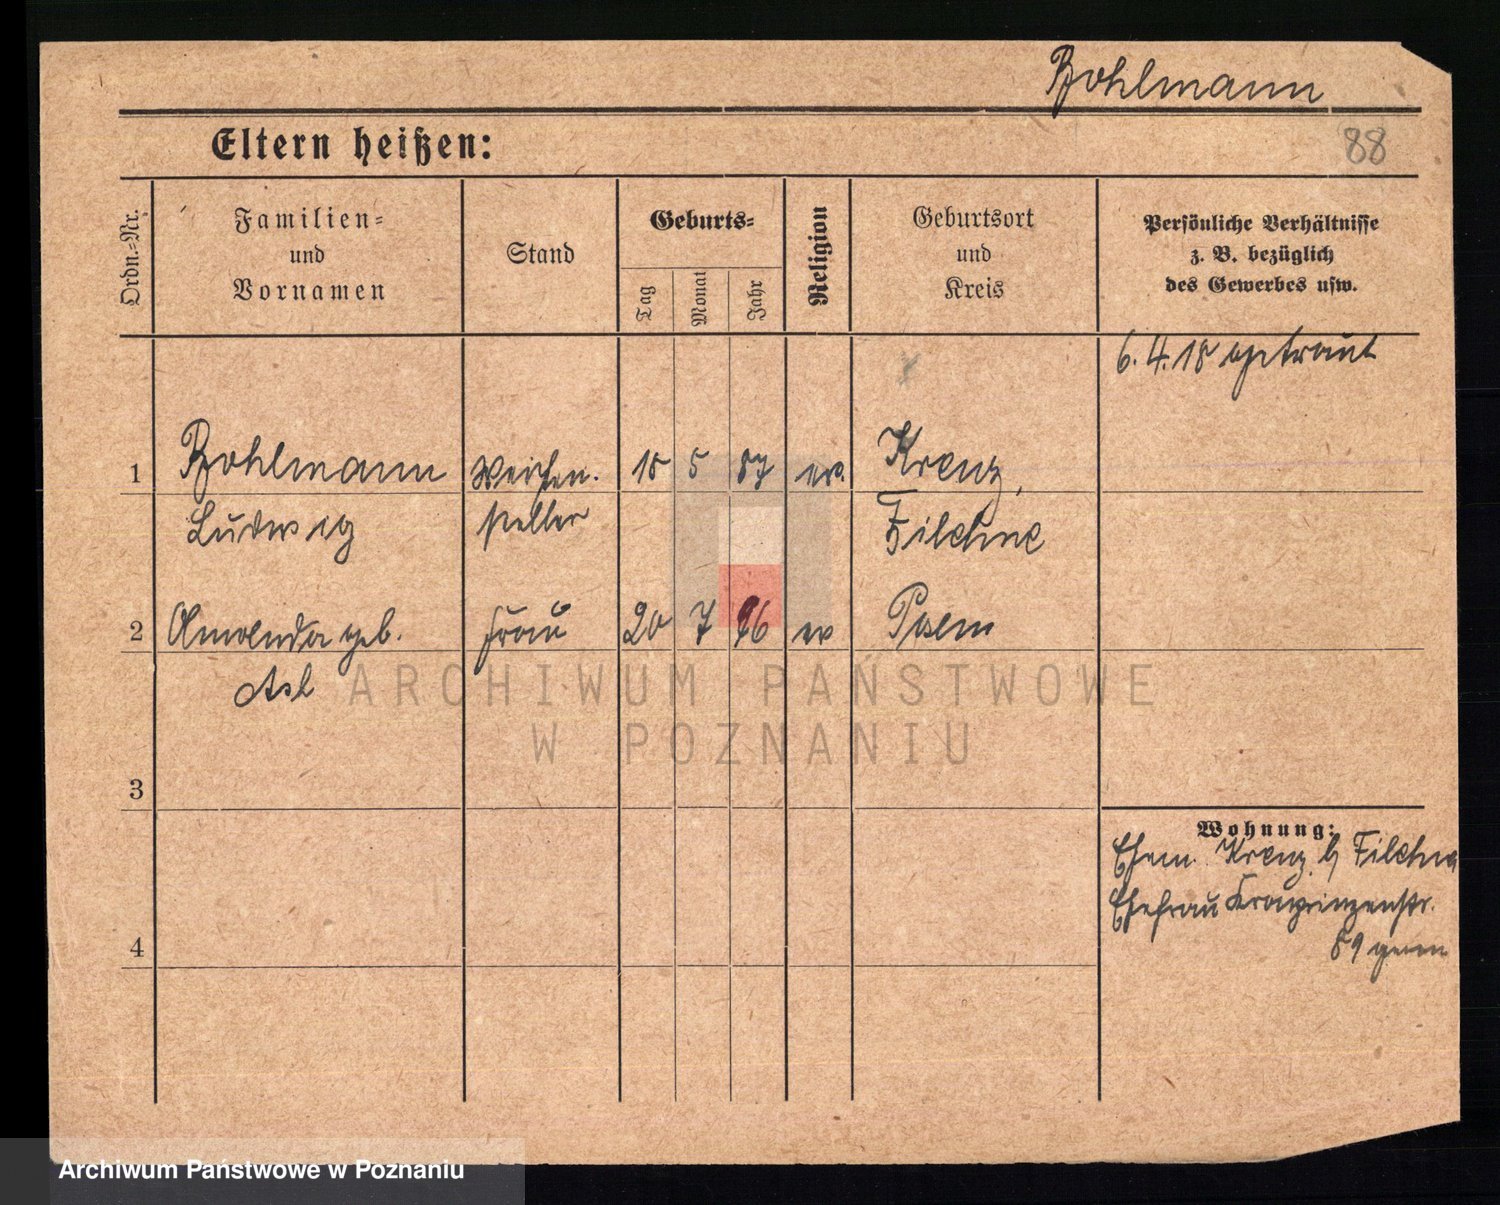 Bohlmann
Eltern heißen:
88
Ordn.-Nr.
Familien-
und
Vornamen
Stand
Geburts-
Tag
Monat
Jahr
Religion
Geburtsort
und
Kreis
Persönliche Verhältnisse
z. B. bezüglich
des Gewerbes usw.
6. 4. 18 getraut
1 Bohlmann Weichen- 18 5 87 ev. Krenz,
Ludwig steller Filehne
2 geb. Frau 20 7 96 ev Posen
3
Wohnung:
Ehem. Krenz b/ Filehne
Ehefrau Kronprinzenstr.
4
89
ARCHIWUM PAŃSTWOWE
W POZNANIU
Archiwum Państwowe w Poznaniu